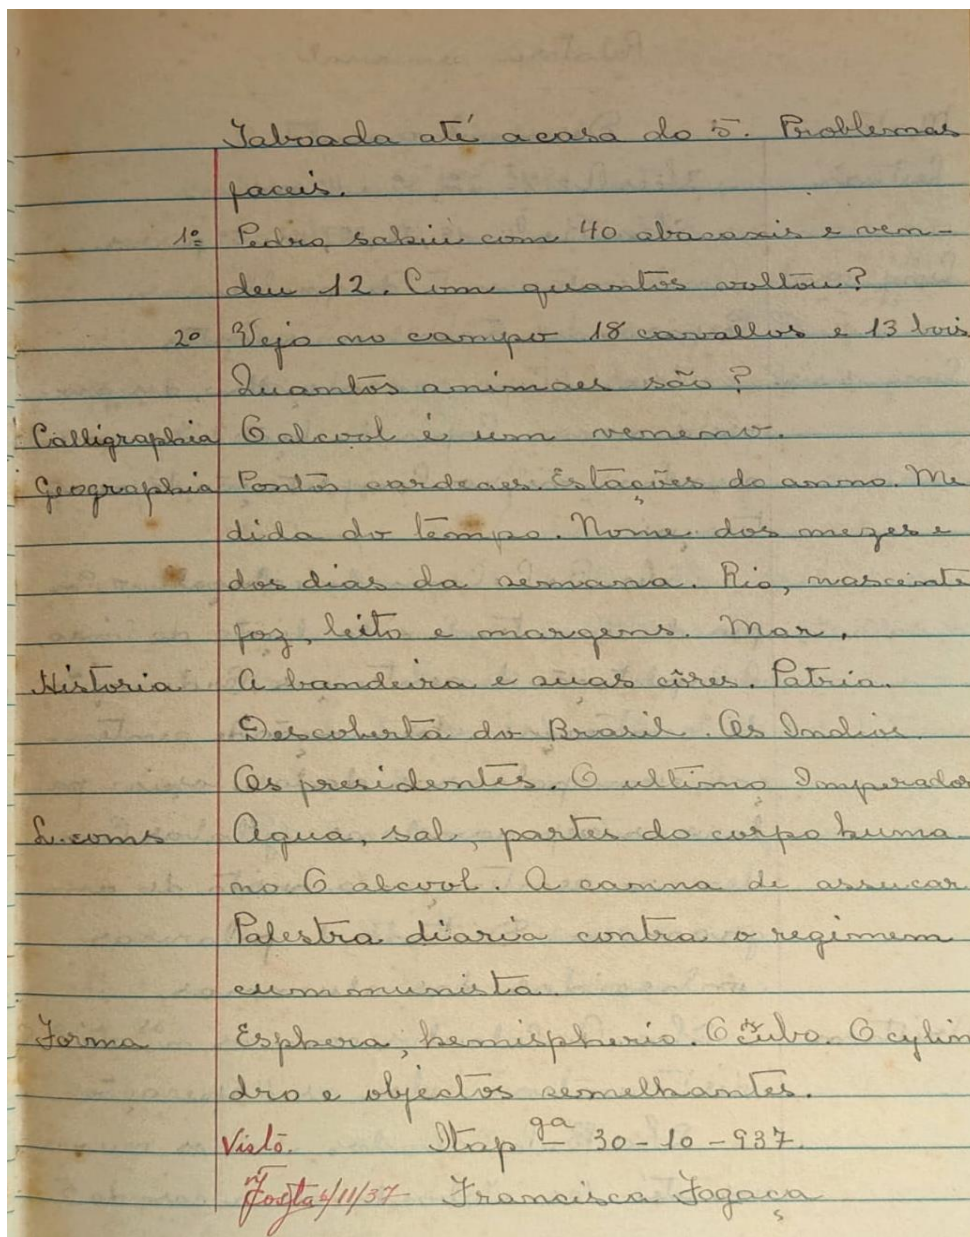 Taboada até a casa do 5. Problemas
faceis.
1º Pedro sahiu com 40 abacaxis e ven-
deu 12. Com quantos voltou?
2º Vejo no campo 18 cavallos e 13 bois
Quantos animaes são?
Calligraphia O alcool é um veneno.
Geographia Pontos cardeaes. Estações do anno. Me
dida do tempo. Nome dos mezes e
dos dias da semana. Rio, nascente
foz, leito e margens. Mar.
Historia A bandeira e suas côres. Patria.
Descoberta do Brasil. Os Indios.
Os presidentes. O ultimo Imperador
L. coms Agua, sal, partes do corpo huma
no O alcool. A canna de assucar
Palestra diaria contra o regimem
cummunista.
Forma Esphera, hemispherio. O cubo. O cylin
dro e objectos semelhantes.
Visto. Itap ga 30-10-937.
6/11/37 Francisca Fogaça